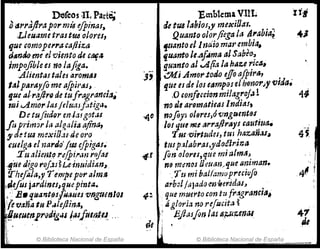 Desseos II. Parte,
ô arrâstra por mis espinas,
Lleuame tras tus olores,
que como perra castiza
dando me el viento de caça
impossible es no la siga.
Alientas tales aromas 39
tal parayso me aspiras,
que al rastro de tu fragrancia
mi Amor las felusas fatiga.
De tu sudor en las gotas 40
su primor la algalia afina,
y de tus mexillas de oro
cuelga el nardo sus espigas.
Tu aliento respiran rosas 41
que digo rosas? Le inuidian,
Thesala, y Tempe por alma
de sus jardines, que pinta.
Es quantos suaues vnguentos 42
se vaña tu Palestina,
Emblema VIII. 115
de tus labios, y mexillas.
Quanto olor siega la Arabia, 43
quanto el Indio mar embia,
quanto le afama al Sabeo,
quanto al Asia la haze rica,
Mi Amor todo esso aspira,
que es de los campos el honor, y vida;
O confeccion milagrosa! 44
no de aromaticas Indias,
no soys olores, ô vnguentos
los que me arrastrays cautiua.
Tus virtudes, tus hazañas, 45
tus palabras, y doctrina
son olores, que mi alma,
no menos lleuan, que animan.
Tu mi balsamo precioso 46
arbol sajado en heridas,
que muerto con tu fragrancia,
á gloria no resucita?
Estas son las azuzenas 47